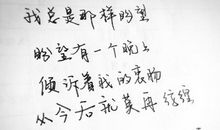 我总是那样盼望
盼望有一个晚上
倾诉着我的衷肠
从今后就莫再彷徨